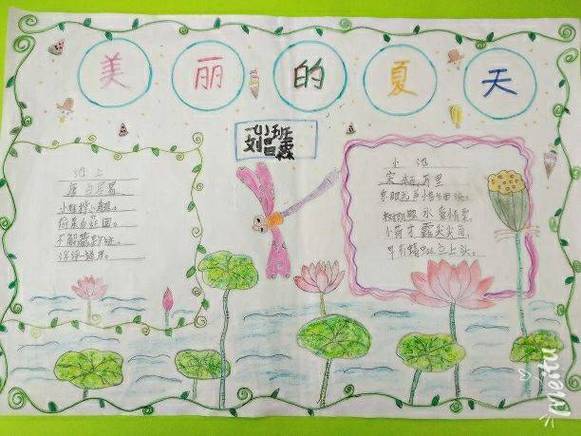 美丽的夏天
池上
唐 白居易
小娃撑小艇,
不解藏踪迹,
小池
宋 杨万里
泉眼无声惜细流,
树阴照水爱晴柔,
小荷才露尖尖角,
早有蜻蜓立上头。
Meitu